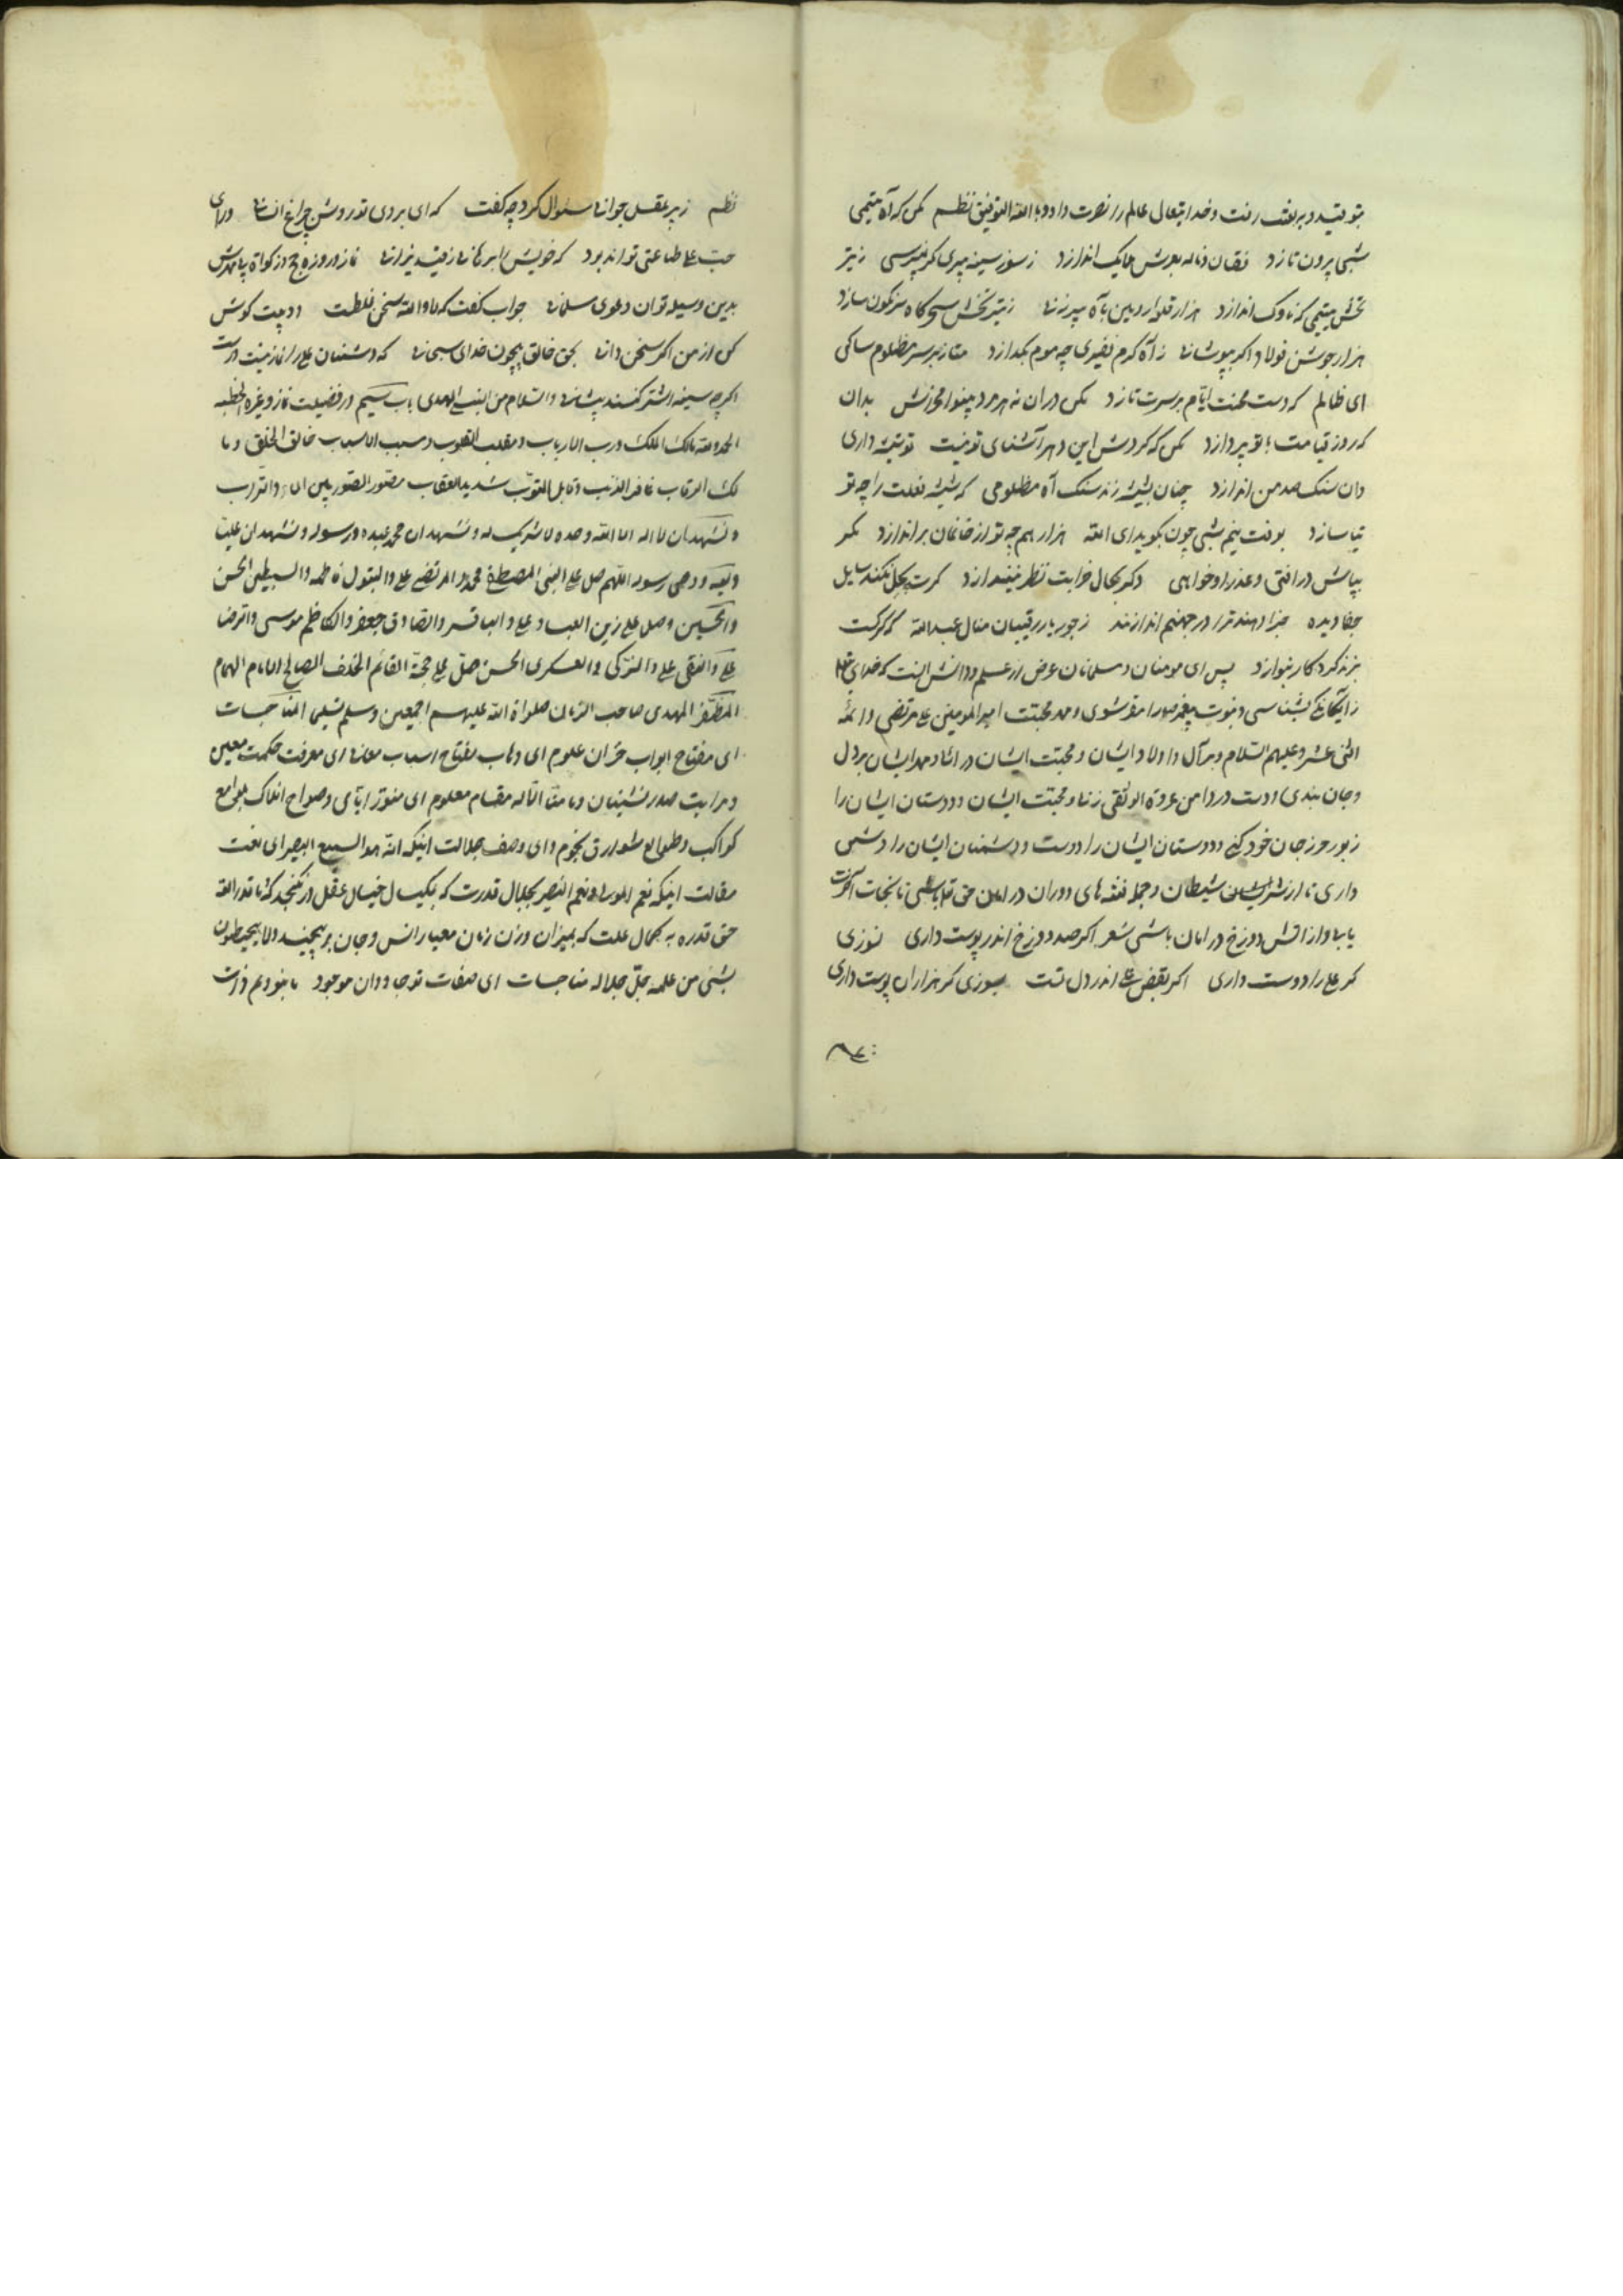 بتو قید و به لعنت رفت و خدایتعالی عالم را نصرت داد و بالله التوفیق نظم مکن که آه یتیمی
شبی برون تازد فغان و ناله بعرش ملایک اندازد ز سوز سینه پیری مگر نمیپرسی ز تیر
تخش یتیمی که ناوک اندازد هزار قلعه ارد بین بآه پیرزنی ز تیر تخش سحرگاه سرنکون سازد
هزار جوشن فولاد اکر بپوشانی ز آه کرم فقیری چه موم بگدازد متاز بر سر مظلوم ساکی
ای ظالم که دست محنت ایام بر سرت تازد بدان
که روز قیامت بتو پردازد مکن که کردش این دهر آشنای تو نیست تو شیشه داری
دان سنک صد من اندازد چنان بشیشه زند سنک آه مظلومی که شیشه فلک را چه تو
تیا سازد بوقت نیم شبی چون بگوید ای الله هزار هم چه تو از خانمان براندازد مگر
بپایش در افتی و عذر او خواهی دگر بحال خرابت نظر نیندازد کرت بحل نکند سایل
جفا دیده جزا دهند ترا در جهنم اندازند ز جور یار رقیبان منال عبدالله که کرکت
بزند کردکار بنوازد پس ای مومنان و مسلمانان عرض از علم و دانش انست که خدای تعالی
را بیکانکی بشناسی و نبوت پیغمبر مقر شوی و محبت امیر المومنین علی مرتضی و ائمه
اثنی عشر علیهم السلام و بر آل و اولاد ایشان و محبت ایشان در ایشان بر دل
و جان بندی و دست در دامن عروة الوثقی زنی و محبت ایشان و دوستان ایشان را
زیور حرز جان خود کنی و دوستان ایشان را دوست و دشمنان ایشان را دشمن
داری تا از شر شیطان و جمله فتنه های دوران در امان حق تعالی باشی تا نجات آخرت
یابی و از آتش دوزخ در امان باشی شعر اکر صد دوزخ اندر پوست داری نسوزی
کر علی را دوست داری اکر بغض علی اندر دل تست بسوزی کر هزاران پوست داری
نظم ز پیر عقل جوانی سئوال کرد و چه کفت که ای بروی تو روشن چراغ انسانی ورای
حب علی طاعتی تواند بود که خویش را برهانی ز قید نیرانی نماز و روزه و حج و زکواة
بدین وسیله توان دعوی مسلمانی جواب کفت که لا والله سخن غلطت دو بیت کوش
کن از من اکر سخن دانی بحق خالق بیچون خدای سبحانی که دشمنان علی را نماز نیست درست
اکرچه سینه اشتر کنند پیشانی والسلام من اتبع الهدی باب سیم در فضیلت نماز و غیره الخطبه
الحمد لله مالک الملک و رب الارباب و مقلب القلوب و مسبب الاسباب خالق الخلق و ما
لک الرقاب غافر الذنب و قابل التوب شدید العقاب مصور الصور بین الماء و التراب
و نشهد ان لا اله الا الله وحده لا شریک له و نشهد ان محمد عبده و رسوله و نشهد ان علیا
ولیه و وصی رسوله اللهم صل علی النبی المصطفی محمد و المرتضی علی و البتول فاطمه و السبطین الحسن
و الحسین و صل علی زین العباد علی و الباقر و الصادق جعفر و الکاظم موسی و الرضا
علی و النقی علی و الزکی و العسکری الحسن صل علی حجة القائم الخلف الصالح الامام الهمام
المظفر المهدی صاحب الزمان صلواة الله علیهم اجمعین و سلم تسلیما المناجات
ای مفتاح ابواب خزان علوم ای وهاب مفتاح اسباب معانی ای معرفت حکمت معین
و مراتب صدر نشینان و ما منا الا له مقام معلوم ای منور ایامی و صواح افلاک بلوامع
کواکب و طوالع شوارق نجوم و ای وصف جلالت اینکه انه هو السمیع البصیر ای نعت
مقالت اینکه نعم المولی و نعم النصیر بجلال قدرت که بکیال خیال عقل در نکنجد که ما قدر الله
حق قدره به کمال علمت که بمیزان وزن زمان معیار انس و جان بر نسنجد و لا یحیطون
بشئ من علمه جل جلاله مناجات ای صفات تو جاودان موجود